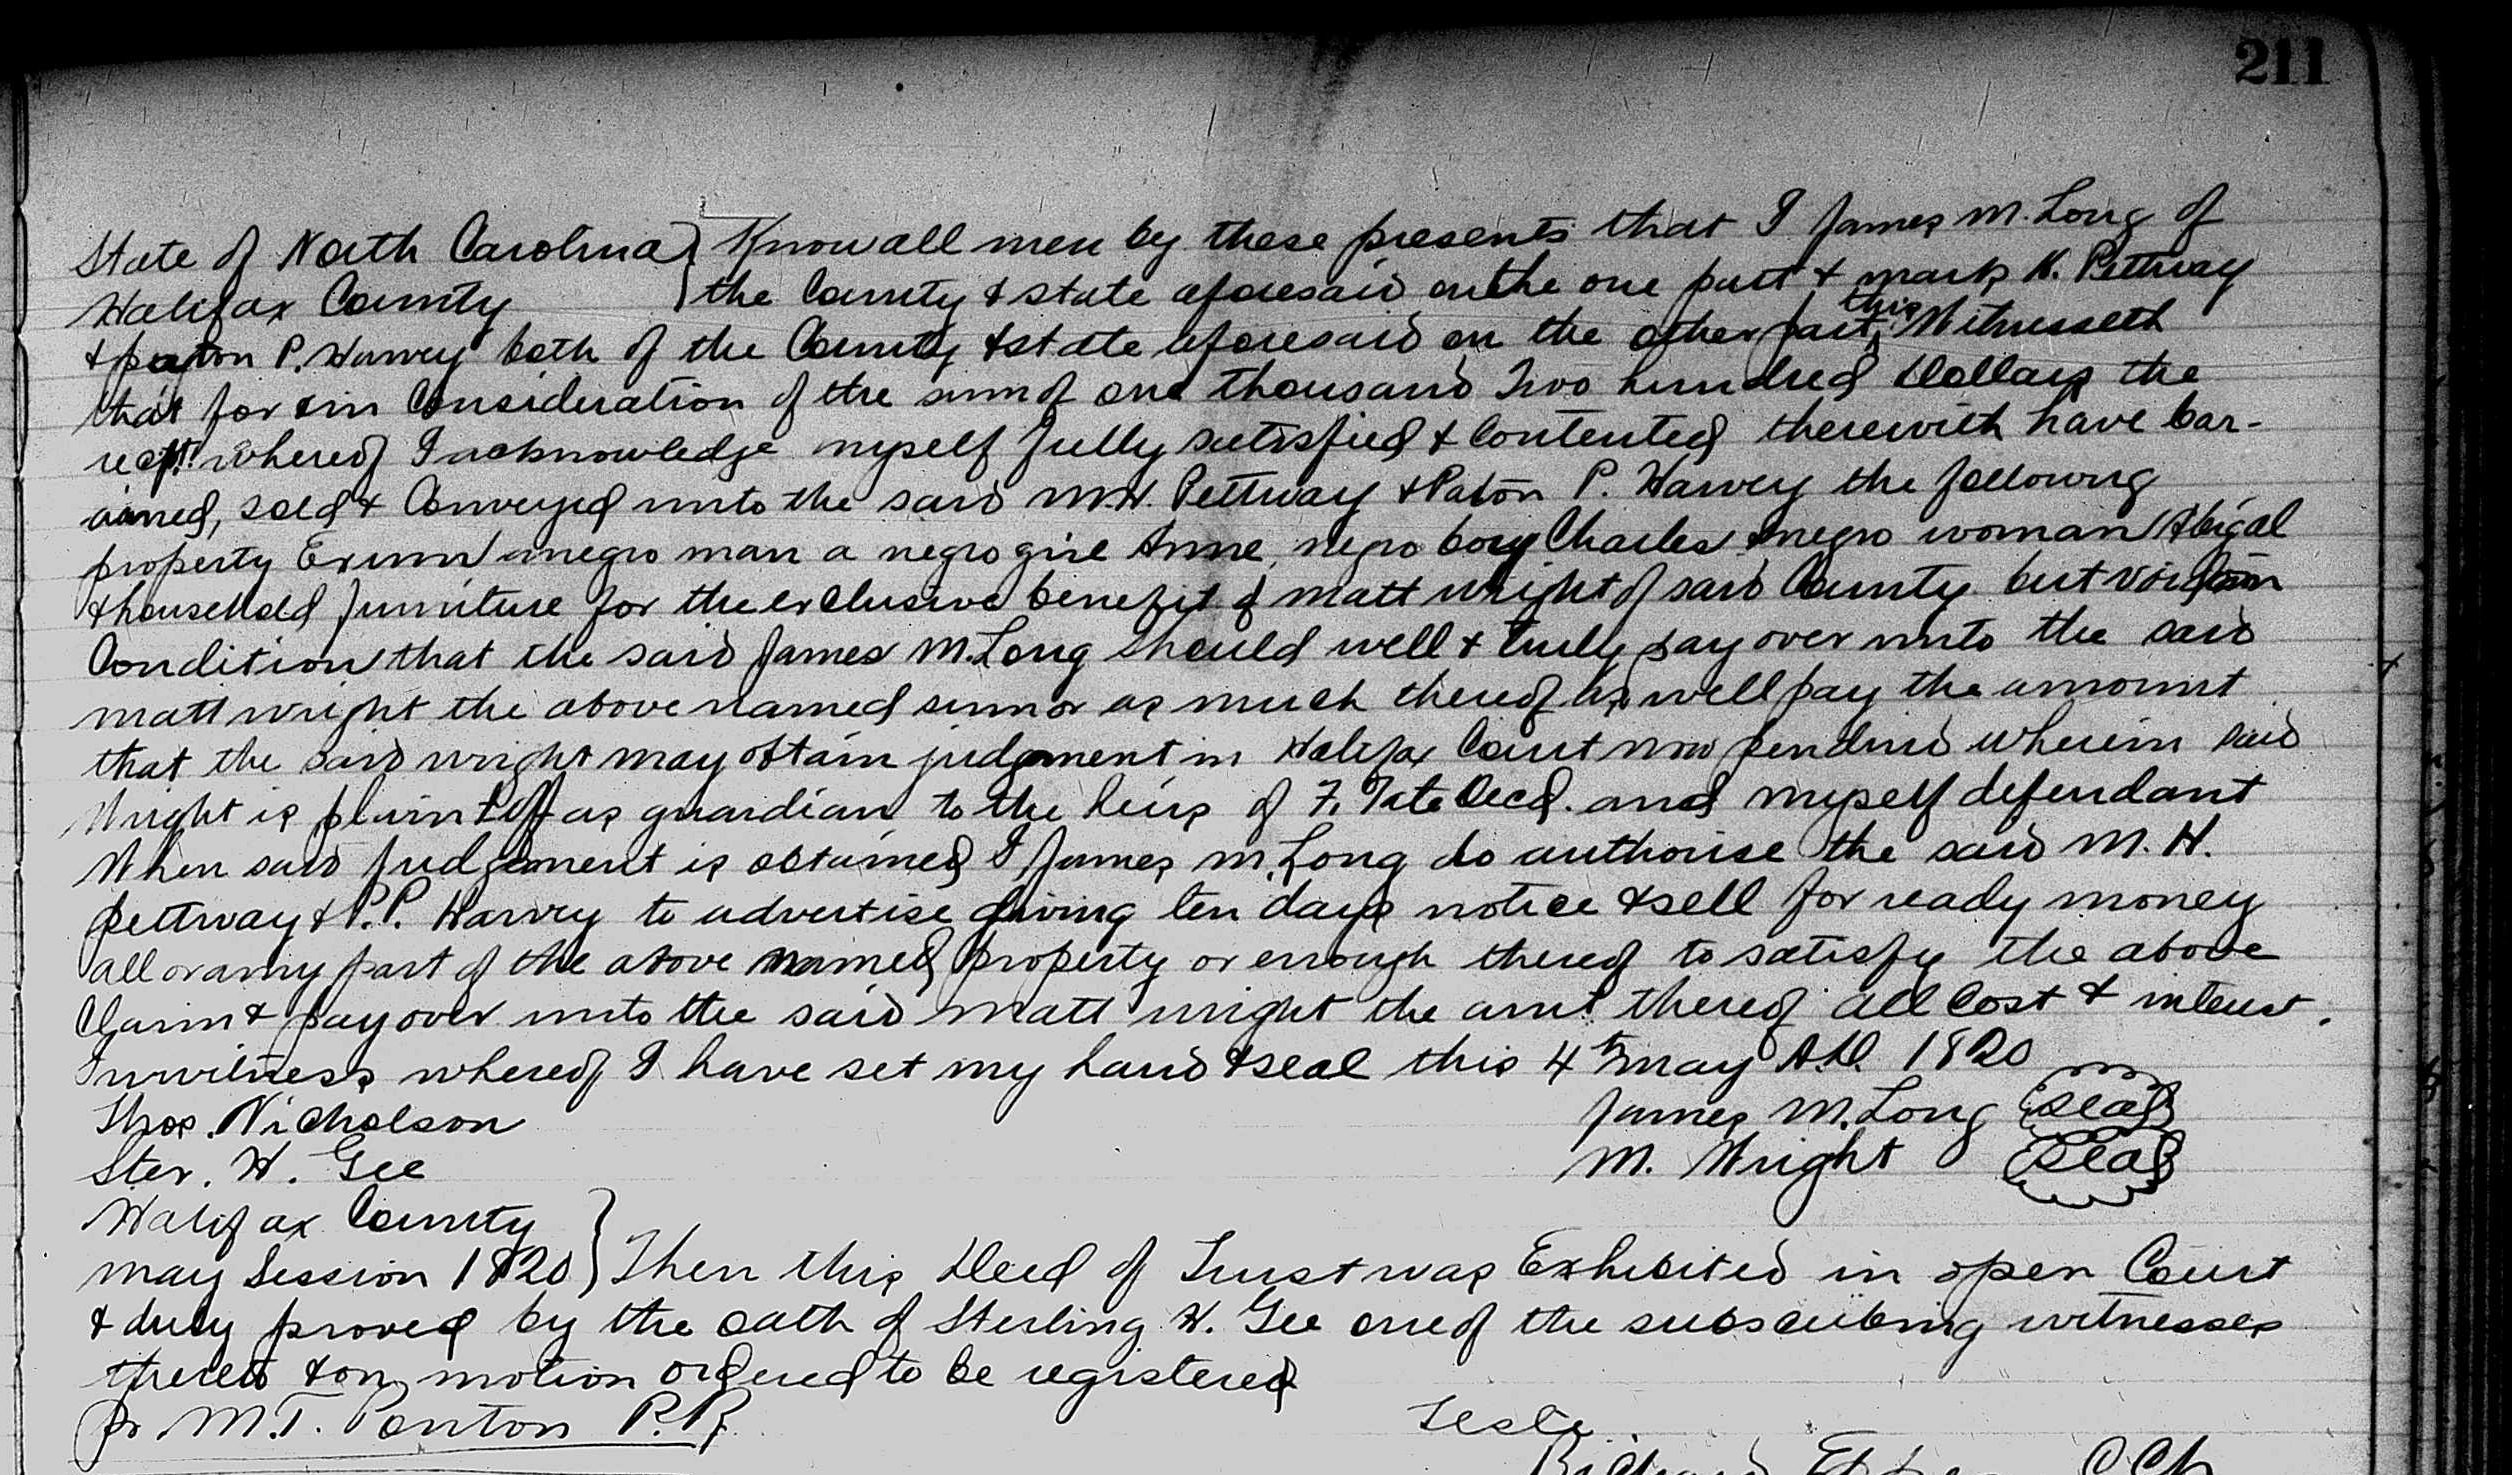 211
State of North Carolina } Know all men by these presents that I James M. Long of
Halifax County } the County & state aforesaid on the one part & mark H. Pettway
& payton P. Harvey both of the County & state aforesaid on the other part, this Witnesseth
that for & in Consideration of the sum of one thousand Two hundred Dollars the
rect. whereof I acknowledge myself fully satisfied & Contented therewith have bar-
ained, sold & Conveyed unto the said M.H. Pettway & Paton P. Harvey the following
property Exum a negro man a negro girl Anne, negro boy Charles & negro woman Abigal
& household furniture for the exclusive benefit of matt wright of said County but void on
Condition that the said James M. Long should well & truly pay over unto the said
matt wright the above named sum or as much thereof as well pay the amount
that the said wright may obtain judgment in Halifax Court now pendind wherein said
Wright is plaintiff as guardian to the heirs of F. Tate decd. and myself defendant
When said judgement is obtained I James M. Long do authorise the said M. H.
Pettway & P.P. Harvey to advertise giving ten days notice & sell for ready money
all or any part of the above named property or enough thereof to satisfy the above
Claim & pay over unto the said Matt wright the amt thereof all Cost & interest.
In witness whereof I have set my hand & seal this 4th may A.D. 1820
Thos. Nicholson James M. Long Seal
Ster. H. Gee M. Wright Seal
Halifax County }
May Session 1820 } Then this Deed of Trust was Exhibited in open Court
& duly proved by the oath of Sterling H. Gee one of the subscribing witnesses
thereto & on motion ordered to be registered
pr M.T. Ponton P.R. Teste
Richard CCk